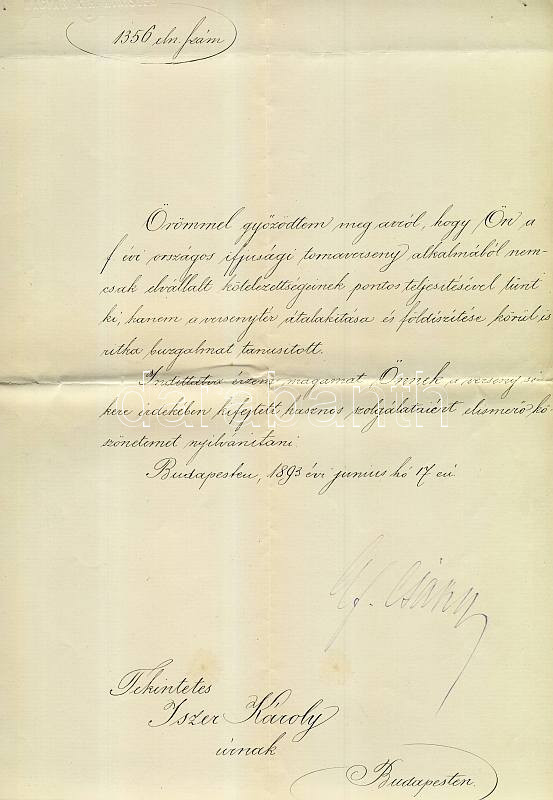 1356 eln. szám
Örömmel győződtem meg avról, hogy Ön a
f. évi országos ifjusági tornaverseny alkalmából nem-
csak elvállalt kötelezettségeinek pontos teljesitésével tünt
ki, hanem a versenytér átalakitása és földiszitése körül is
ritka buzgalmat tanusitott.
Indittatva érzem magamat, Önnek a verseny si-
kere érdekében kifejtett hasznos szolgálataiért elismerő kö-
szönetemet nyilvánitani.
darabanth
Budapesten, 1893 évi junius hó 17 én.
Gf. Csáky
Tekintetes
Iszer Károly
úrnak
Budapesten.